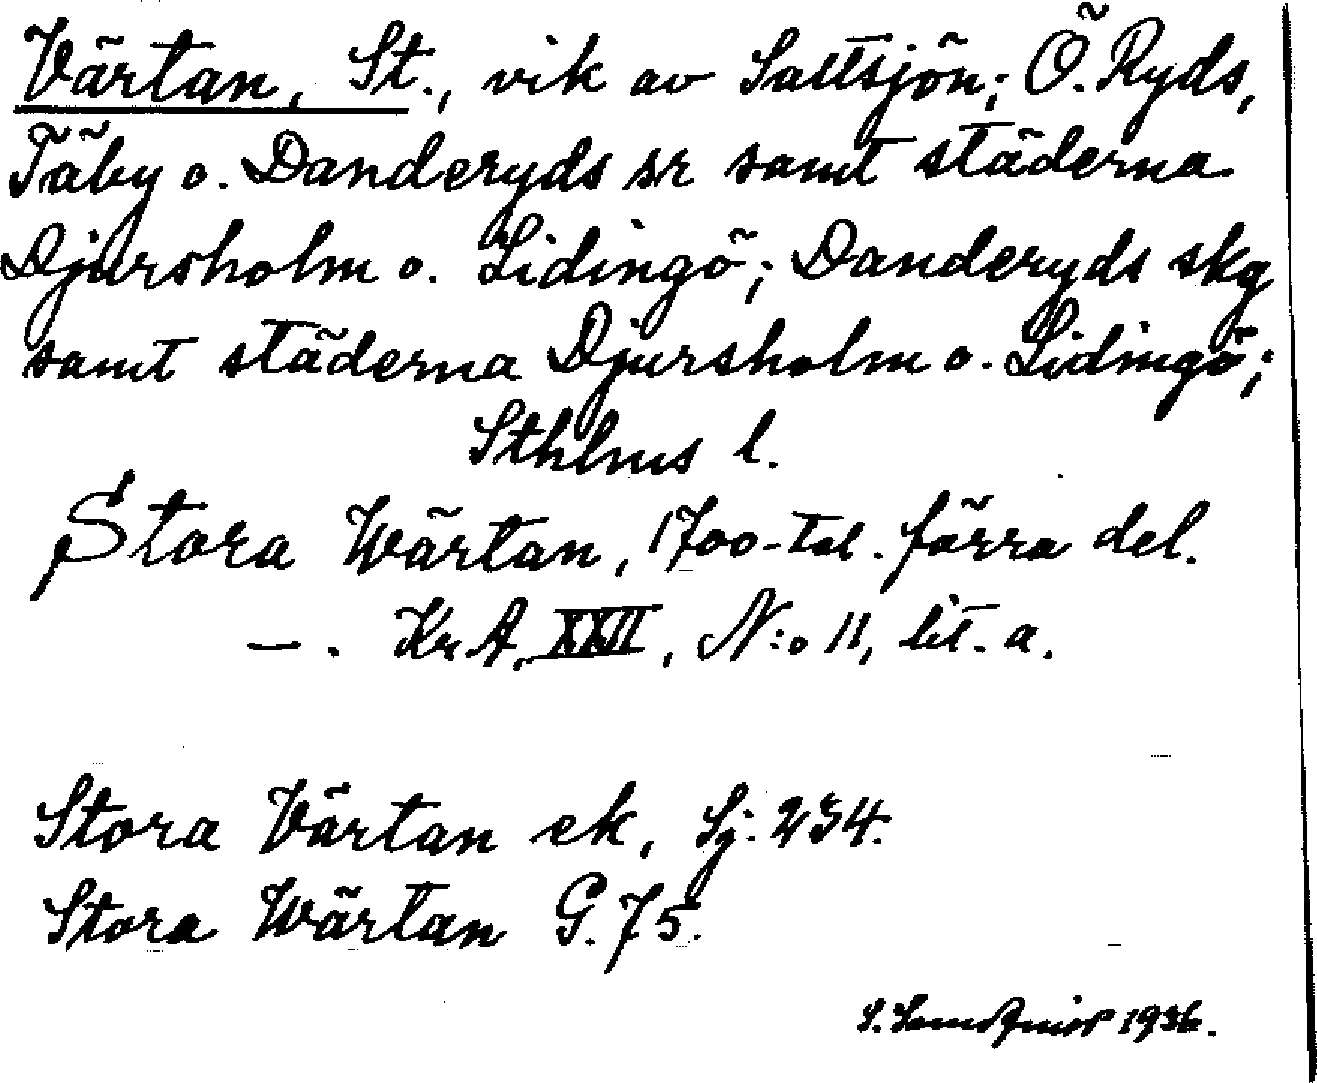 Värtan, St., vik av Saltsjön; Ö. Ryds,
Täby o. Danderyds sr samt städerna
Djursholm o. Lidingö; Danderyds skg
samt städerna Djursholm o. Lidingö;
Sthlms l.
Stora Wärtan, 1700-tal. förra del.
—. KrA, XXII, N:o 11, lit. a.
Stora Värtan ek, Sj. 234.
Stora Wärtan G. 75.
S. 1936.